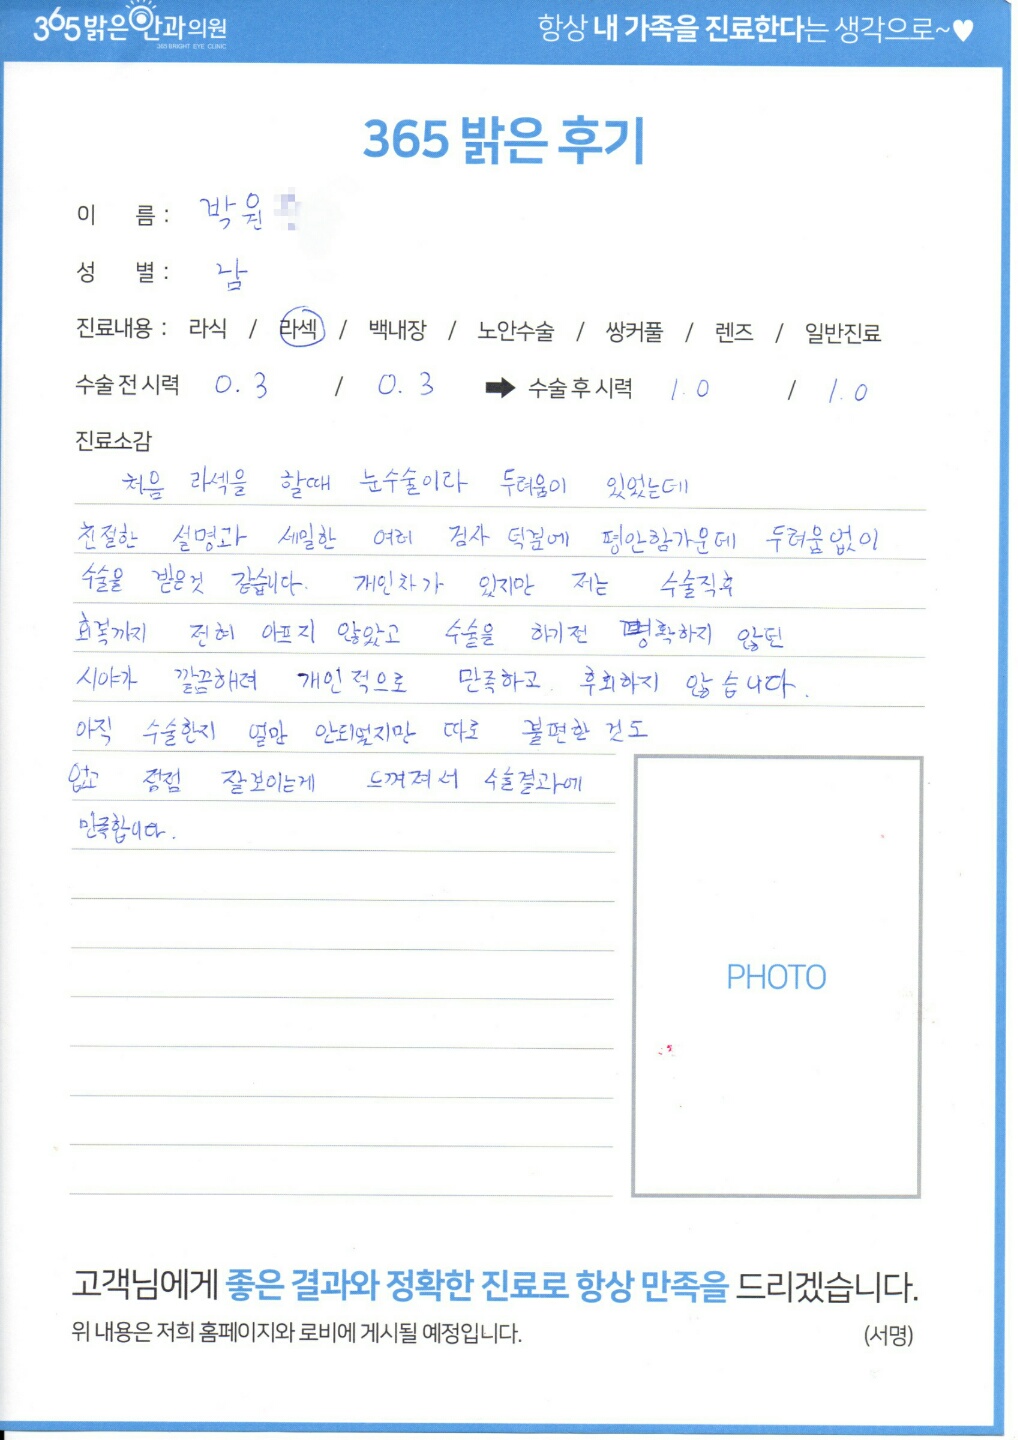 365밝은안과의원
365 BRIGHT EYE CLINIC
항상 내 가족을 진료한다는 생각으로~♥
365 밝은 후기
이 름 : 박원
성 별 : 남
진료내용 : 라식 / 라섹 / 백내장 / 노안수술 / 쌍커풀 / 렌즈 / 일반진료
수술 전 시력 0.3 / 0.3 ➡ 수술 후 시력 1.0 / 1.0
진료소감
처음 라섹을 할때 눈수술이라 두려움이 있었는데
친절한 설명과 세밀한 여러 검사 덕분에 평안함가운데 두려움없이
수술을 받은것 같습니다. 개인차가 있지만 저는 수술직후
회복까지 전혀 아프지 않았고 수술을 하기전 명확하지 않던
시야가 깔끔해져 개인적으로 만족하고 후회하지 않습니다.
아직 수술한지 얼마 안되었지만 따로 불편한 것도
없고 점점 잘보이는게 느껴져서 수술결과에
만족합니다.
PHOTO
고객님에게 좋은 결과와 정확한 진료로 항상 만족을 드리겠습니다.
위 내용은 저희 홈페이지와 로비에 게시될 예정입니다. (서명)